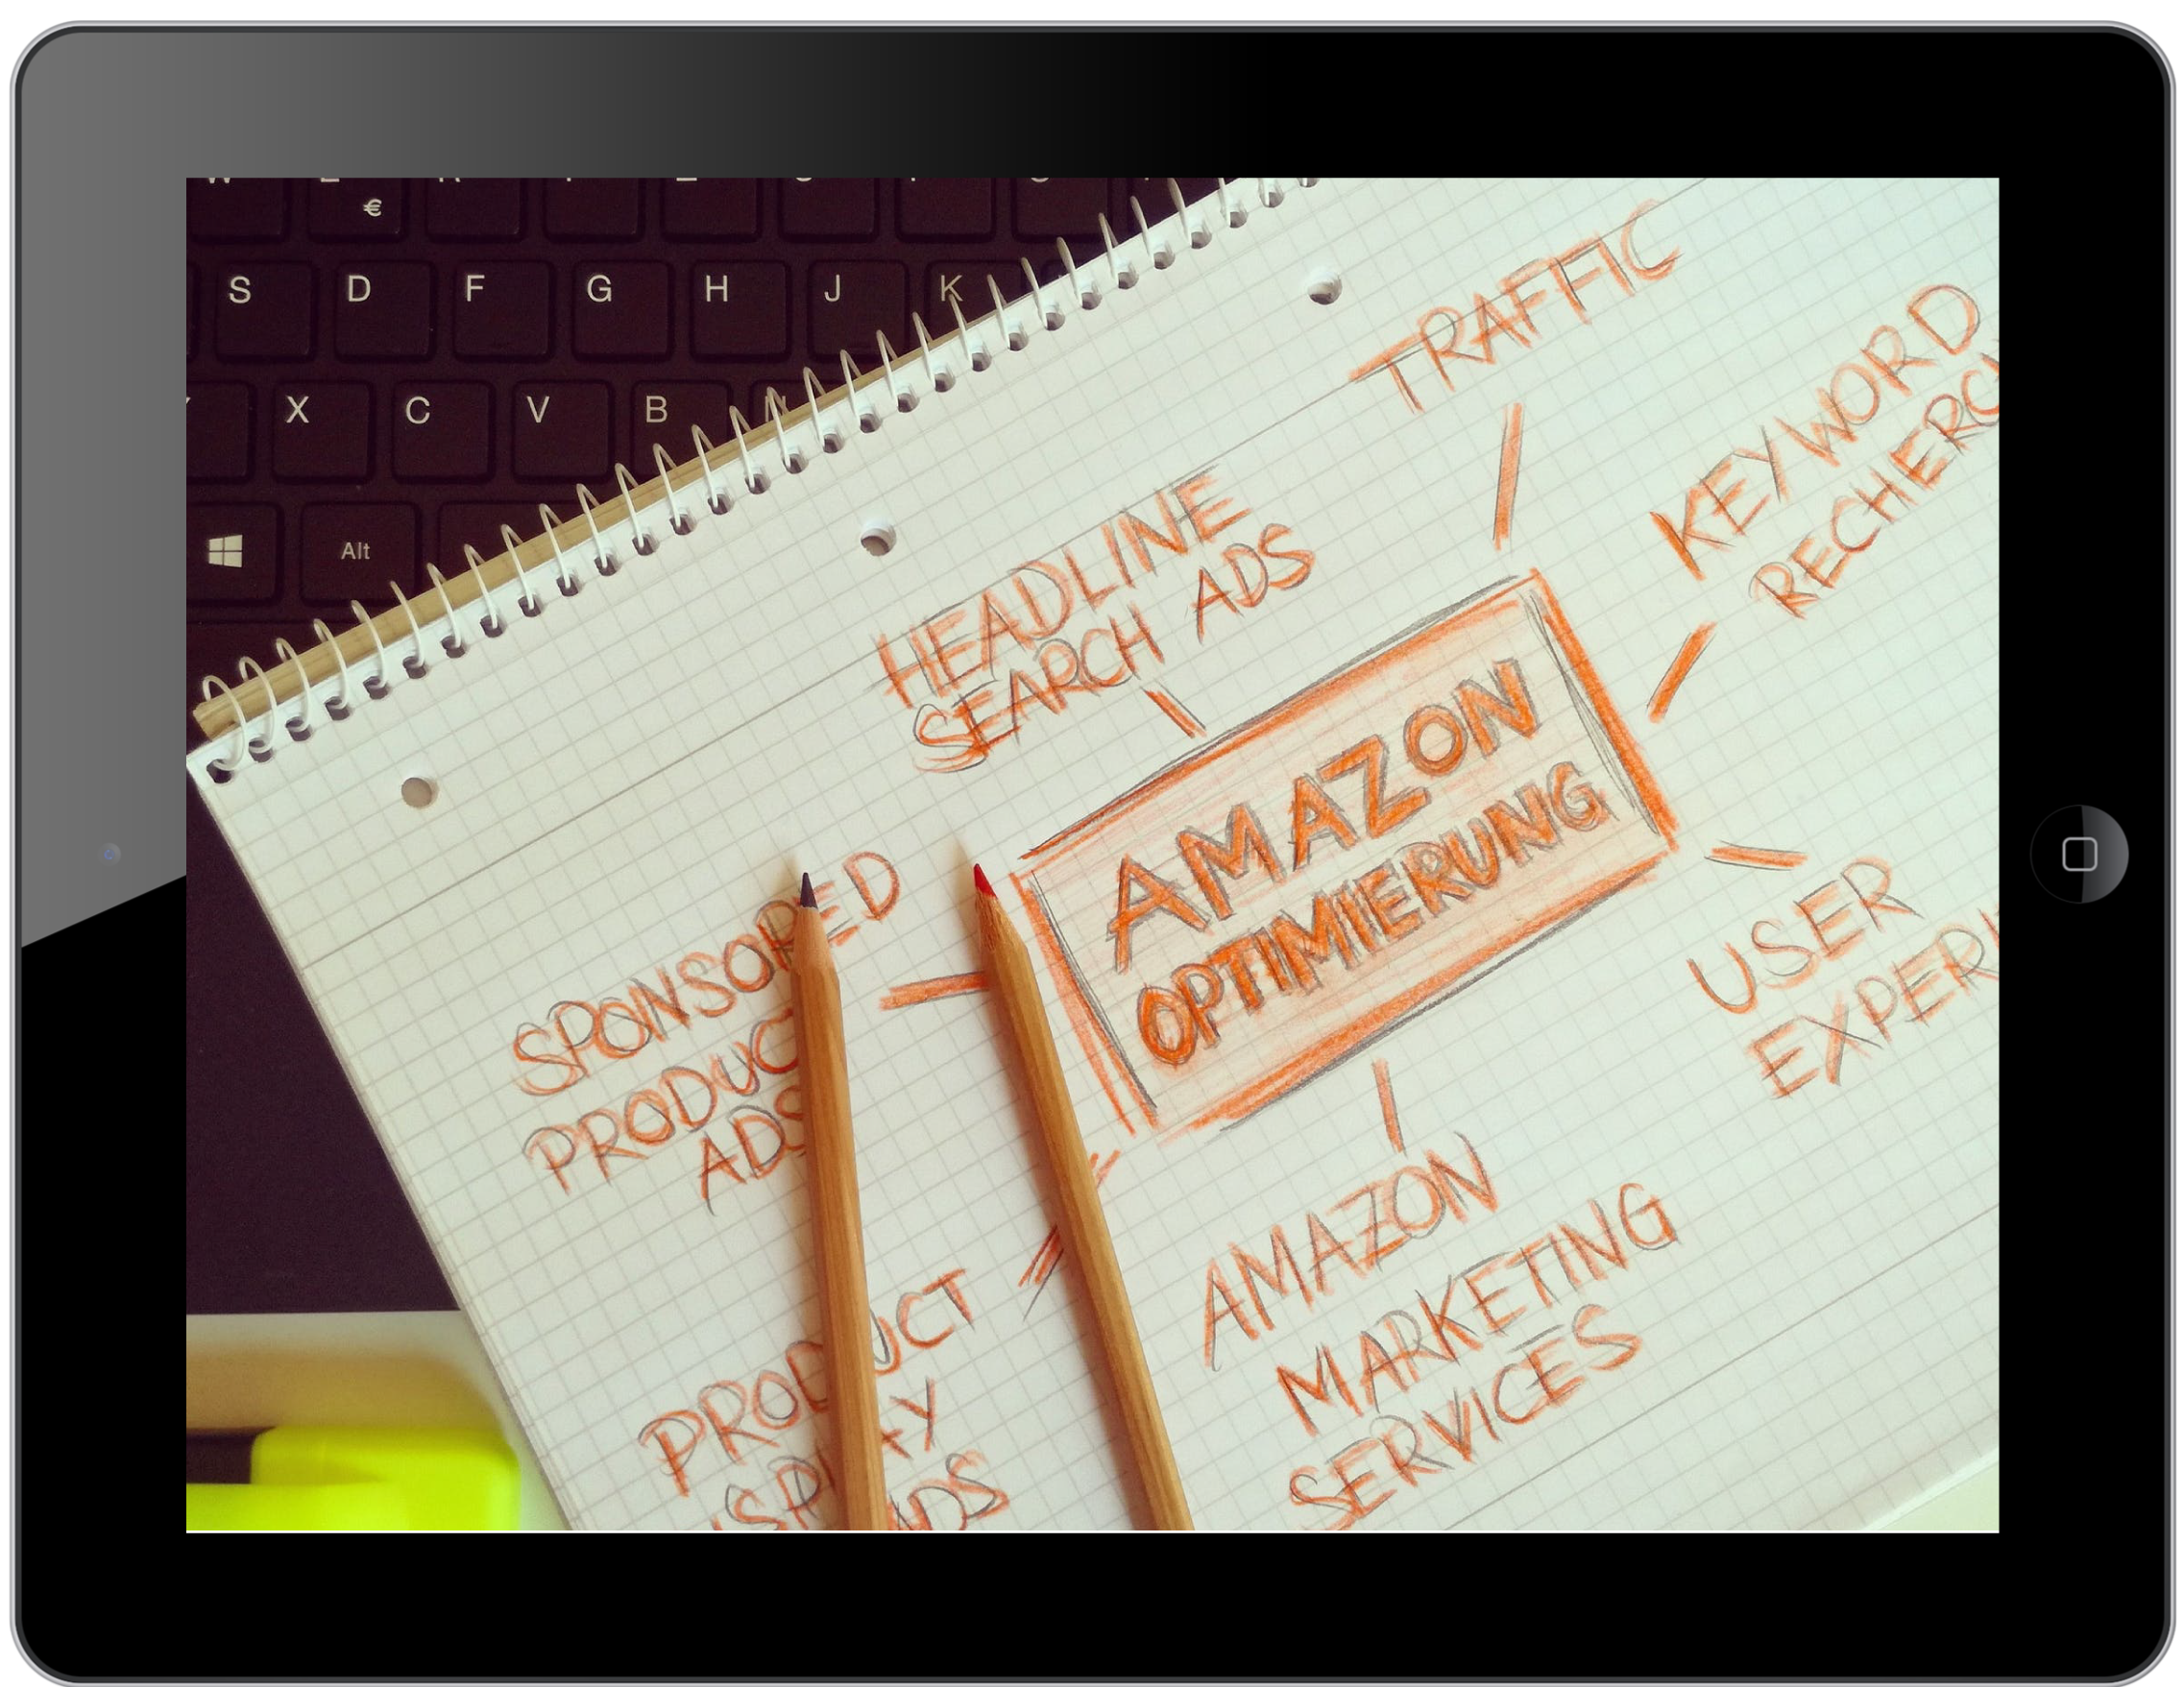 €
S D F G H J K
X C V B N
Alt
TRAFFIC
KEYWORD
HEADLINE
SEARCH ADS
AMAZON
OPTIMIERUNG
SPONSORED
ADS
USER
AMAZON
MARKETING
SERVICES
PRODUCT